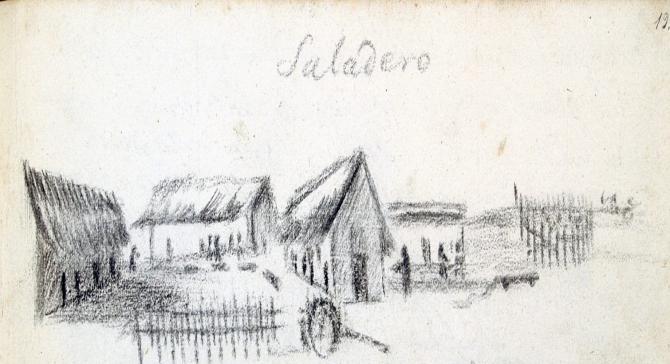 Saladero
13.